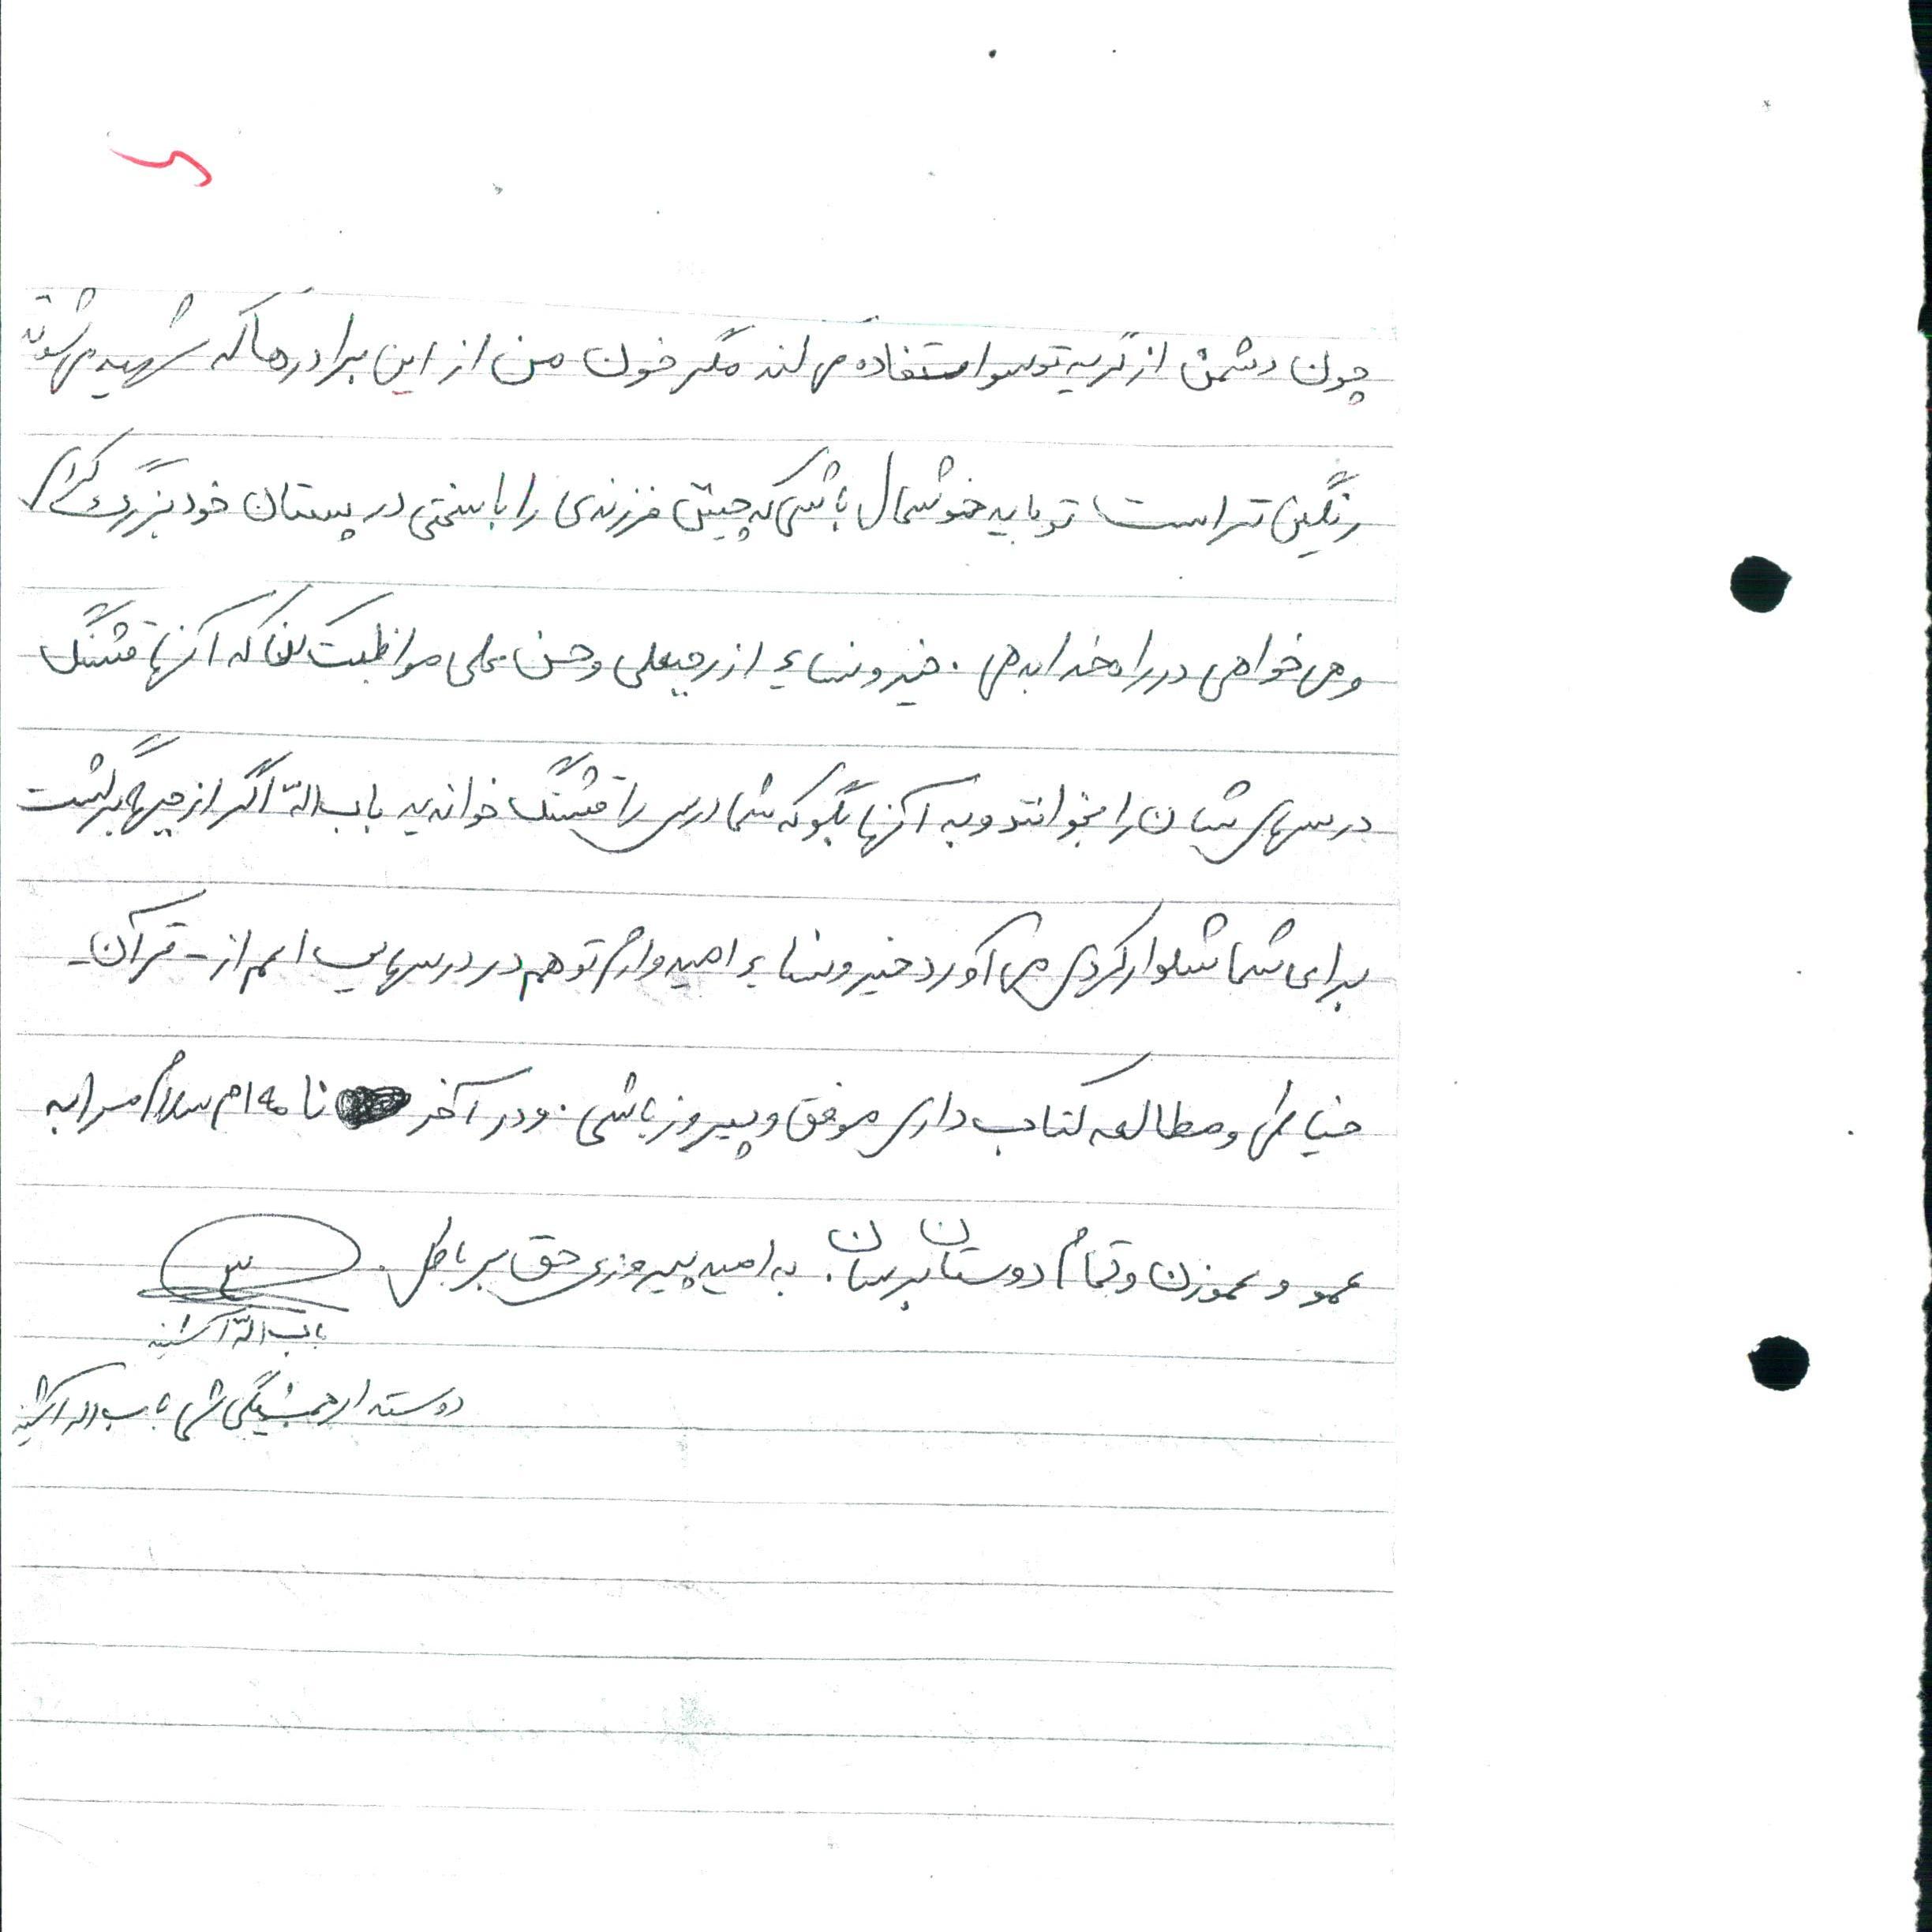 چون دشمن از گریه تو سواستفاده می کند مگر خون من از این برادرها که شهید می شوند
رنگین تر است تو باید خوشحال باشی که چنین فرزندی را با سختی در پستان خود بزرگ کرده ای
و می خواهی در راه خدا بدهی . خیرونساء از رجبعلی و حسن علی مواظبت کن که آنها قشنگ
درسهای شان را بخوانند و به آنها بگو که شما درس را قشنگ خواندید باب الله اگر از جبهه برگشت
برای شما شلوار کردی می آورد خیرونساء امیدوارم تو هم در درسهایی اعم از - قرآن -
خیاطی و مطالعه کتاب داری موفق و پیروز باشی . و در آخر نامه ام سلام مرا به
عمو و عموزن و تمام دوستان برسان . به امید پیروزی حق بر باطل .
باب الله
دوستدار همیشگی شما باب الله